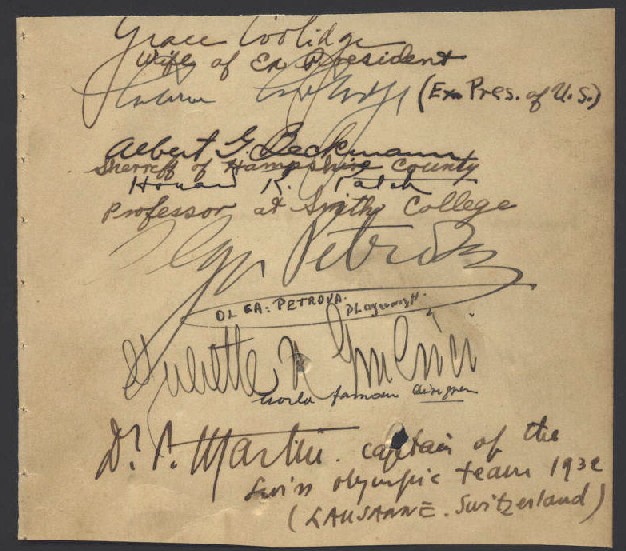 Grace Coolidge
Wife of Ex President
Calvin Coolidge (Ex Pres. of U.S.)
Albert G. Beckmann
Sherreff of Hampshire County
Howard R. Patch
Professor at Smith College
Olga Petrova
OLGA: PETROVA. Playwright.
world famous designer
Dr. P. Martin. captain of the
Swiss olympic team 1932
(LAUSANNE. Switzerland)